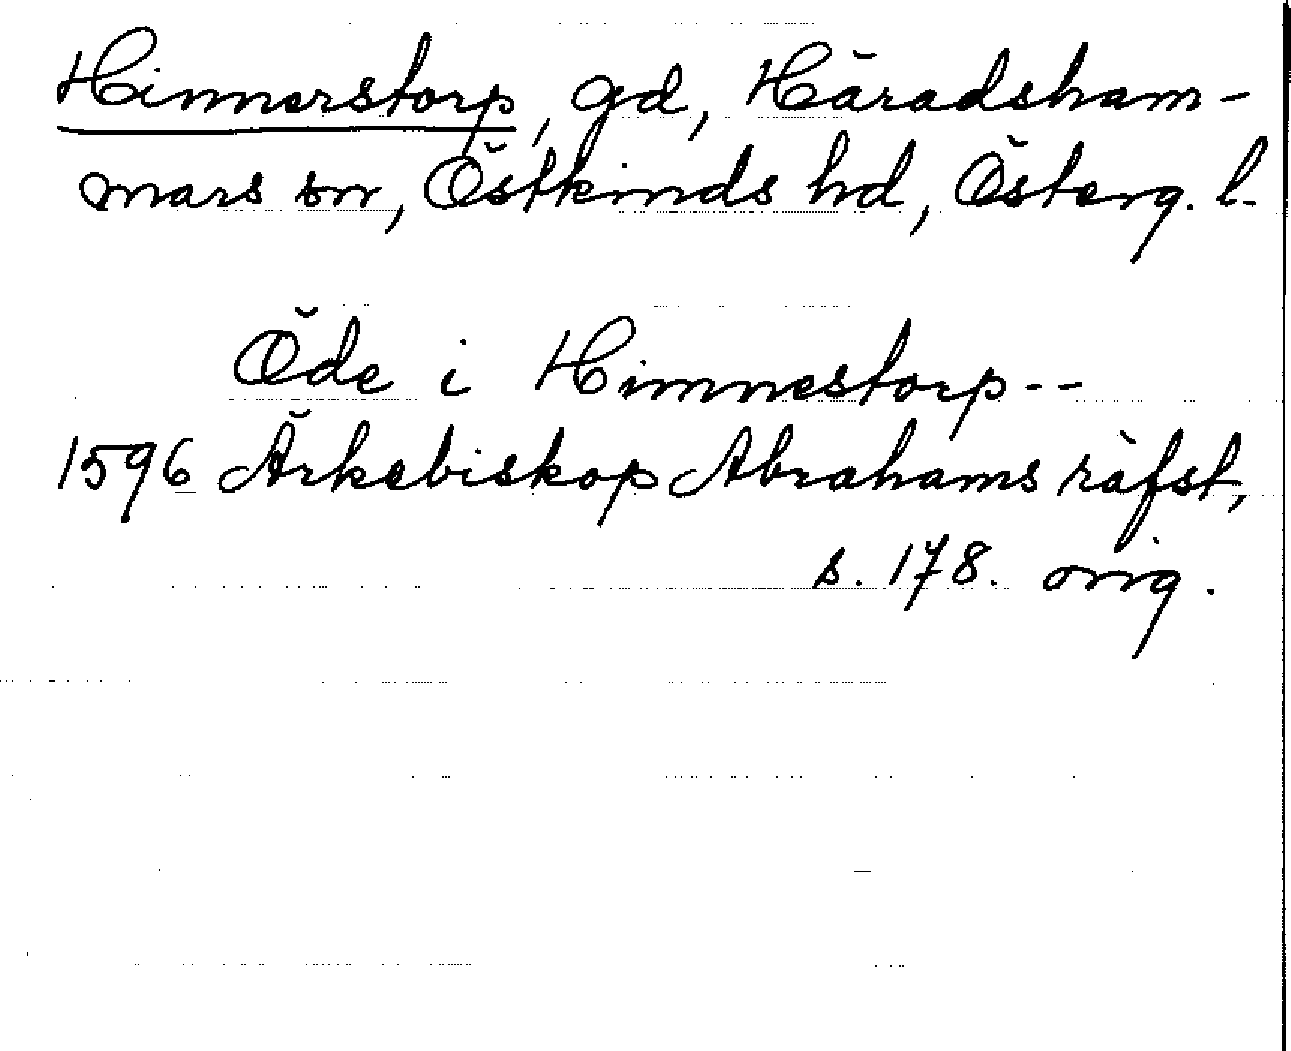 Hinnerstorp, gd, Häradsham-
mars sn, Östkinds hd, Österg. l.
Öde i Himnestorp--
1596 Ärkebiskop Abrahams räfst,
s. 178. orig.